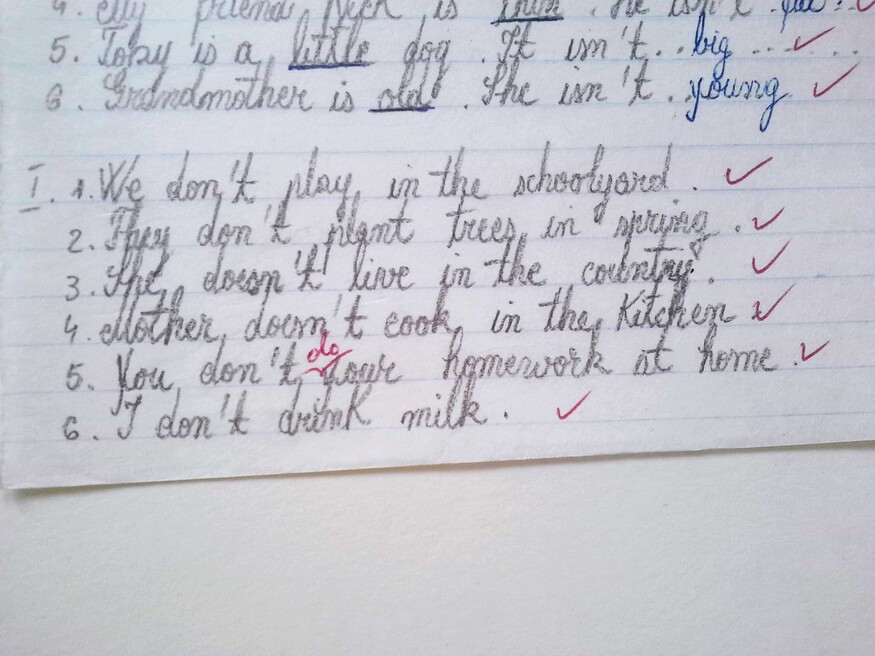 4. My friend Nick is thin. He isn't fat. ✓
5. Toby is a little dog. It isn't..big..... ✓
6. Grandmother is old. She isn't..young ✓
I. 1. We don't play in the schoolyard. ✓
2. They don't plant trees in spring. ✓
3. She doesn't live in the country. ✓
4. Mother doesn't cook in the kitchen ✓
5. You don't do your homework at home. ✓
6. I don't drink milk. ✓